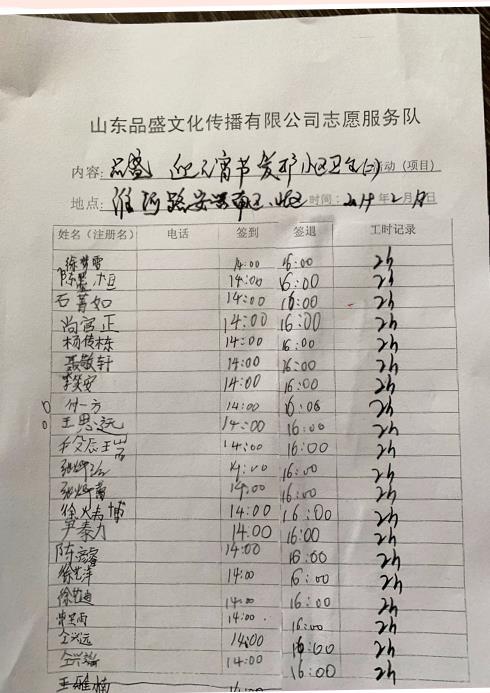 山东品盛文化传播有限公司志愿服务队
内容:品盛 迎元宵节爱护小区卫生(二)活动(项目)
地点: 淮河路安 南区 时间: 2019年2月 日
姓名(注册名) 电话 签到 签退 工时记录
徐梦雪 14:00 16:00 2h
陈墨桓 14:00 16:00 2h
石菁如 14:00 16:00 2h
尚宫正 14:00 16:00 2h
杨传栋 14:00 16:00 2h
聂敬轩 14:00 16:00 2h
14:00 16:00 2h
付一方 14:00 16:00 2h
王思远 14:00 16:00 2h
14:00 16:00 2h
14:00 16:00 2h
14:00 16:00 2h
博 14:00 16:00 2h
尹泰力 14:00 16:00 2h
陈 睿 14:00 16:00 2h
徐艺洋 14:00 16:00 2h
徐艺迪 14:00 16:00 2h
14:00 16:00 2h
仝兴远 14:00 16:00 2h
仝兴端 14:00 16:00 2h
王雅楠